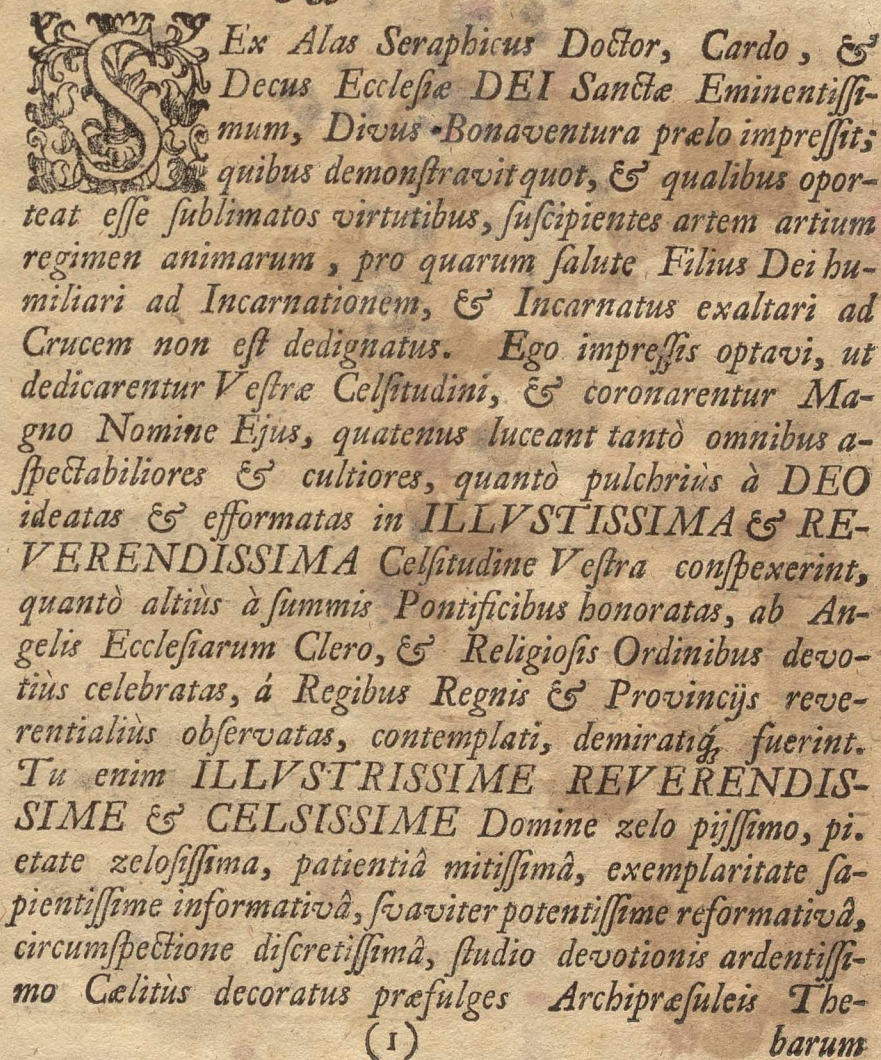 SEx Alas Seraphicus Doctor, Cardo, &
Decus Ecclesiæ DEI Sanctæ Eminentissi-
mum, Divus Bonaventura prælo impressit;
quibus demonstravit quot, & qualibus opor-
teat esse sublimatos virtutibus, suscipientes artem artium
regimen animarum, pro quarum salute Filius Dei hu-
miliari ad Incarnationem, & Incarnatus exaltari ad
Crucem non est dedignatus. Ego impressis optavi, ut
dedicarentur Vestræ Celsitudini, & coronarentur Ma-
gno Nomine Ejus, quatenus luceant tantò omnibus a-
spectabiliores & cultiores, quantò pulchriùs à DEO
ideatas & efformatas in ILLVSTISSIMA & RE-
VERENDISSIMA Celsitudine Vestra conspexerint,
quantò altiùs à summis Pontificibus honoratas, ab An-
gelis Ecclesiarum Clero, & Religiosis Ordinibus devo-
tiùs celebratas, á Regibus Regnis & Provincijs reve-
rentialiùs observatas, contemplati, demiratiq́; fuerint.
Tu enim ILLVSTRISSIME REVERENDIS-
SIME & CELSISSIME Domine zelo pijssimo, pi.
etate zelosissima, patientiâ mitissimâ, exemplaritate sa-
pientissime informativâ, svaviter potentissime reformativâ,
circumspectione discretissimâ, studio devotionis ardentissi-
mo Cælitùs decoratus præfulges Archipræsuleis The-
(1)
barum